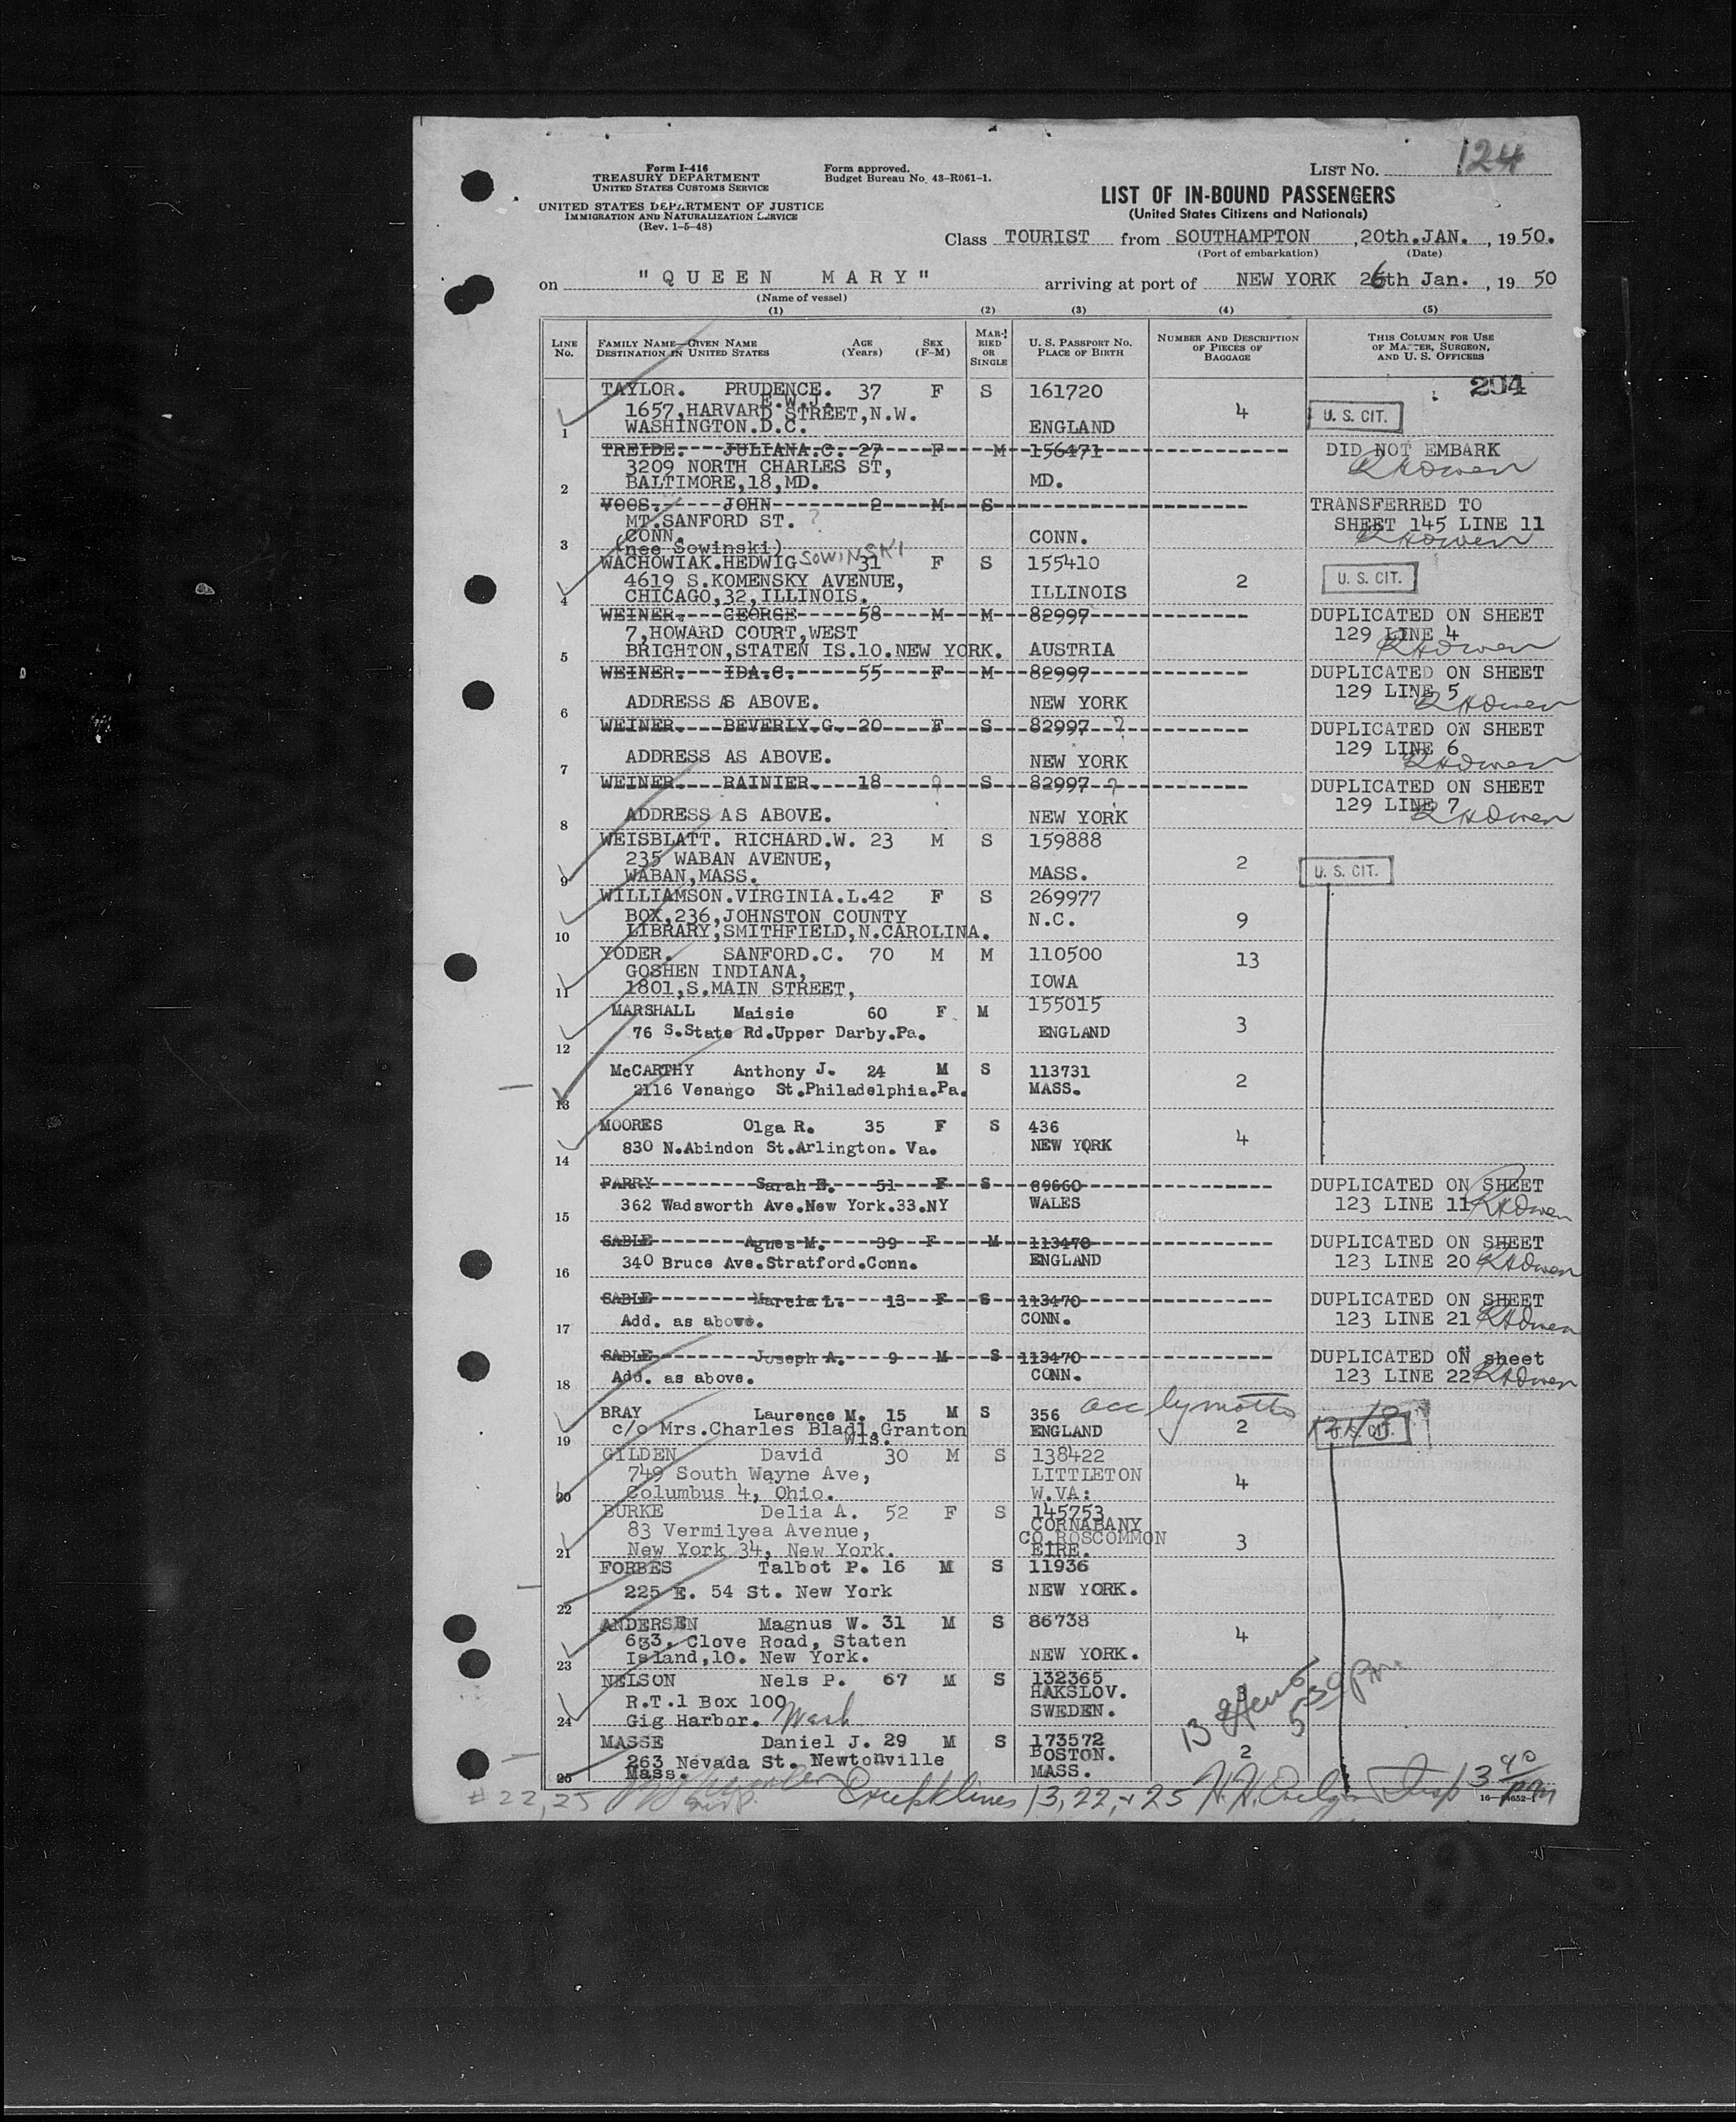 Form I-416
TREASURY DEPARTMENT
UNITED STATES CUSTOMS SERVICE
UNITED STATES DEPARTMENT OF JUSTICE
IMMIGRATION AND NATURALIZATION SERVICE
(Rev. 1-5-48)
Form approved.
Budget Bureau No. 43-R061-1.
LIST No. 124
LIST OF IN-BOUND PASSENGERS
(United States Citizens and Nationals)
Class TOURIST from SOUTHAMPTON, 20th.JAN., 1950.
(Port of embarkation) (Date)
on "QUEEN MARY" arriving at port of NEW YORK 26th Jan., 1950
(Name of vessel)
(1) (2) (3) (4) (5)
LINE No. FAMILY NAME—GIVEN NAME DESTINATION IN UNITED STATES AGE (Years) SEX (F-M) MARRIED OR SINGLE U. S. PASSPORT No. PLACE OF BIRTH NUMBER AND DESCRIPTION OF PIECES OF BAGGAGE THIS COLUMN FOR USE OF MASTER, SURGEON, AND U. S. OFFICERS
204
TAYLOR. PRUDENCE. 37 F S 161720
E.W.J.
1657,HARVARD STREET,N.W. 4 U. S. CIT.
1 WASHINGTON.D.C. ENGLAND
TREIDE. JULIANA.C. 27 F M 156471 DID NOT EMBARK
3209 NORTH CHARLES ST, RHOwen
2 BALTIMORE,18,MD. MD.
VOOS. JOHN 2 M S TRANSFERRED TO
MT.SANFORD ST. ? SHEET 145 LINE 11
3 CONN. CONN. RHOwen
(nee Sowinski)
WACHOWIAK.HEDWIG SOWINSKI 31 F S 155410
4619 S.KOMENSKY AVENUE, 2 U. S. CIT.
4 CHICAGO,32,ILLINOIS. ILLINOIS
WEINER. GEORGE 58 M M 82997 DUPLICATED ON SHEET
7,HOWARD COURT,WEST 129 LINE 4
5 BRIGHTON,STATEN IS.10.NEW YORK. AUSTRIA RHOwen
WEINER. IDA.C. 55 F M 82997 DUPLICATED ON SHEET
129 LINE 5
6 ADDRESS AS ABOVE. NEW YORK RHOwen
WEINER. BEVERLY.G. 20 F S 82997 ? DUPLICATED ON SHEET
129 LINE 6
7 ADDRESS AS ABOVE. NEW YORK RHOwen
WEINER. RAINIER. 18 ? S 82997 ? DUPLICATED ON SHEET
129 LINE 7
8 ADDRESS AS ABOVE. NEW YORK RHOwen
WEISBLATT. RICHARD.W. 23 M S 159888
235 WABAN AVENUE, 2 U. S. CIT.
9 WABAN,MASS. MASS.
WILLIAMSON.VIRGINIA.L.42 F S 269977
BOX,236,JOHNSTON COUNTY N.C. 9
10 LIBRARY,SMITHFIELD,N.CAROLINA.
YODER. SANFORD.C. 70 M M 110500 13
GOSHEN INDIANA, IOWA
11 1801,S.MAIN STREET,
MARSHALL Maisie 60 F M 155015
76 S.State Rd.Upper Darby.Pa. ENGLAND 3
12
McCARTHY Anthony J. 24 M S 113731
2116 Venango St.Philadelphia.Pa. MASS. 2
13
MOORES Olga R. 35 F S 436
830 N.Abindon St.Arlington. Va. NEW YORK 4
14
PARRY Sarah E. 51 F S 89660 DUPLICATED ON SHEET
362 Wadsworth Ave.New York.33.NY WALES 123 LINE 11 RHOwen
15
SABLE Agnes M. 39 F M 113470 DUPLICATED ON SHEET
340 Bruce Ave.Stratford.Conn. ENGLAND 123 LINE 20 RHOwen
16
SABLE Marcia L. 13 F S 113470 DUPLICATED ON SHEET
Add. as above. CONN. 123 LINE 21 RHOwen
17
SABLE Joseph A. 9 M S 113470 DUPLICATED ON sheet
Add. as above. CONN. 123 LINE 22 RHOwen
18
BRAY Laurence M. 15 M S 356 acc by
c/o Mrs.Charles Bladl,Granton ENGLAND 2 U. S. CIT.
19 Wis.
GILDEN David 30 M S 138422
749 South Wayne Ave, LITTLETON 4
20 Columbus 4, Ohio. W.VA:
BURKE Delia A. 52 F S 145753
83 Vermilyea Avenue, CORNABANY
CO.ROSCOMMON 3
21 New York 34, New York. EIRE.
FORBES Talbot P. 16 M S 11936
225 E. 54 St. New York NEW YORK.
22
ANDERSEN Magnus W. 31 M S 86738
633, Clove Road, Staten 4
23 Island,10. New York. NEW YORK.
NELSON Nels P. 67 M S 132365
R.T.1 Box 100 HAKSLOV.
24 Gig Harbor. Wash SWEDEN.
MASSE Daniel J. 29 M S 173572
263 Nevada St. Newtonville BOSTON. 2
25 Mass. MASS.
#22,25 Except lines 13, 22, + 25 Insp 3 40 pm